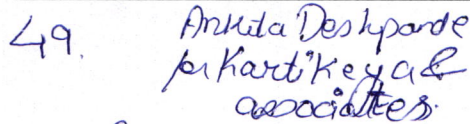 49. Ankita Deshpande
for Kartikeya &
associates.